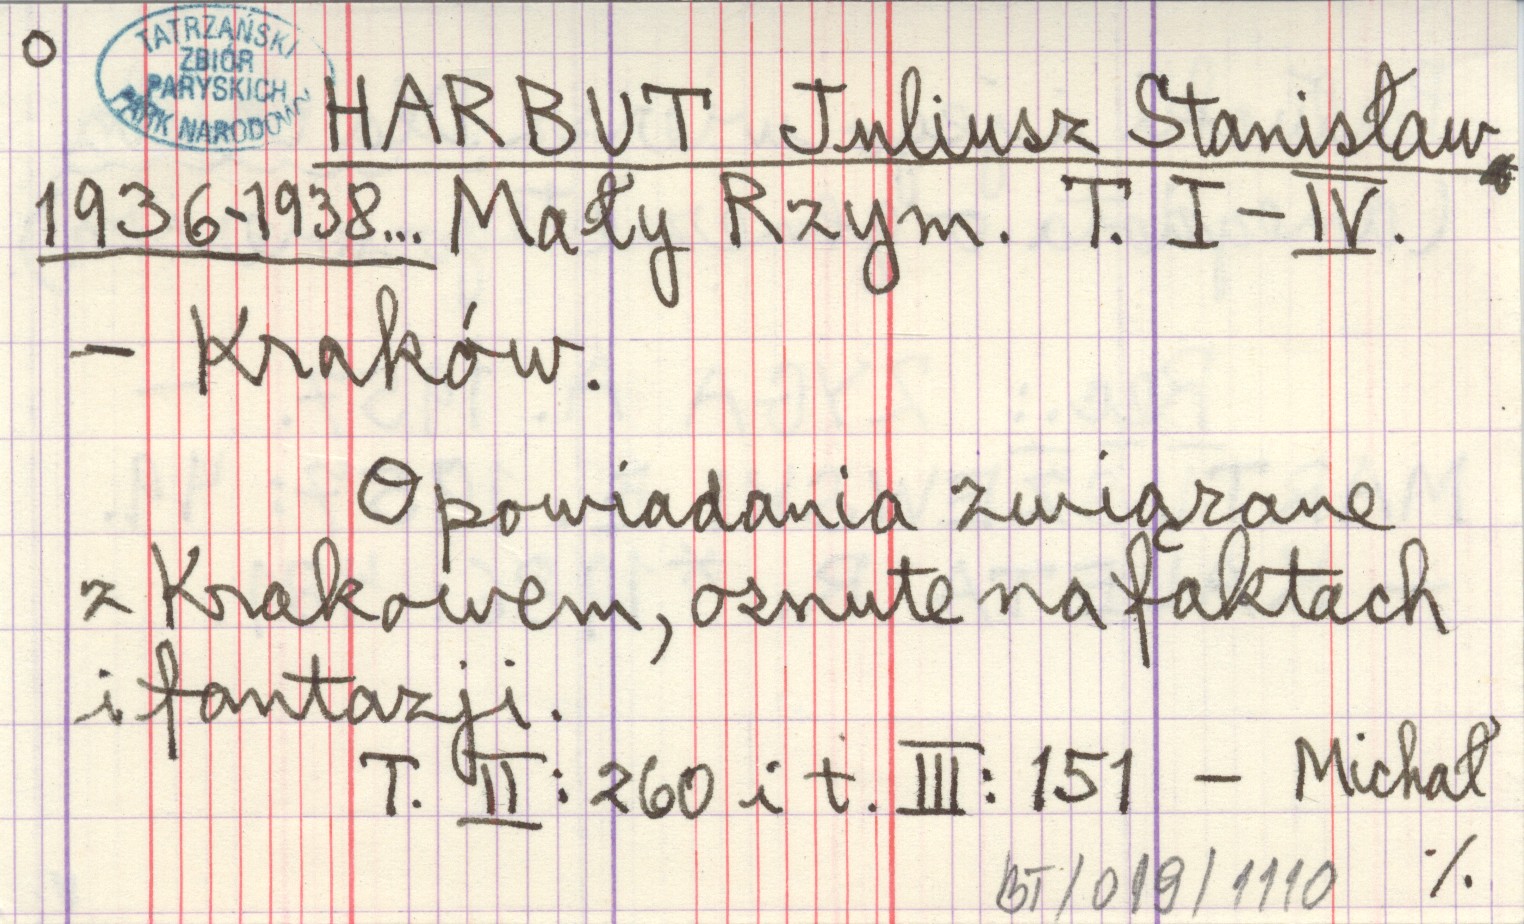 TATRZAŃSKI
ZBIÓR
PARYSKICH
PARK NARODOWY
HARBUT Juliusz Stanisław.
1936-1938... Mały Rzym. T. I-IV.
- Kraków.
Opowiadania związane
z Krakowem, osnute na faktach
i fantazji.
T. II: 260 i t. III: 151 - Michał
·/.
BT/019/1110